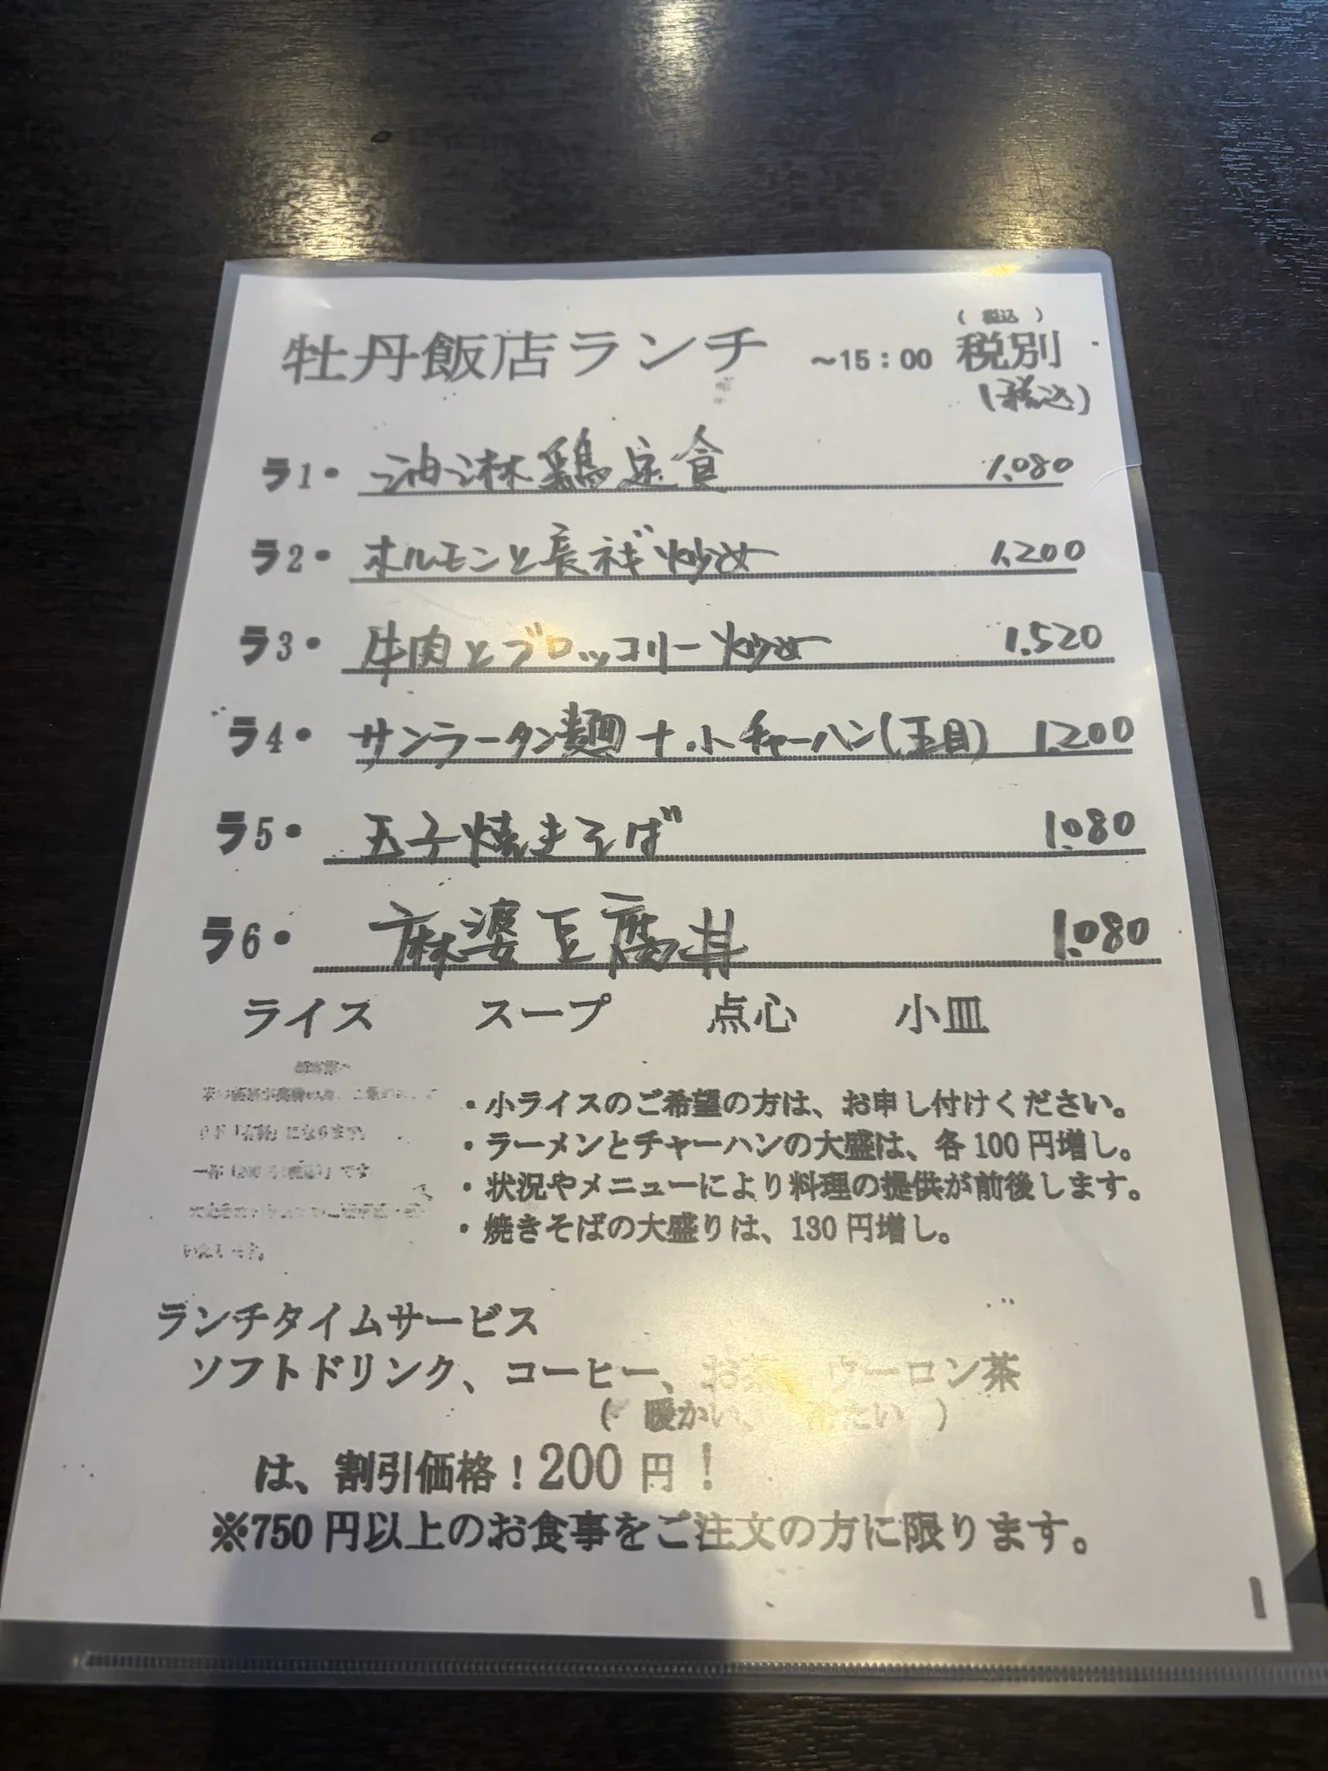 牡丹飯店ランチ ～15：00 税別
( 税込 )
(税込)
ラ1・ 油淋鶏定食 1.080
ラ2・ ホルモンと長ネギ炒め 1.200
ラ3・ 牛肉とブロッコリー炒め 1.520
ラ4・ サンラータン麺+小チャーハン(五目) 1.200
ラ5・ 五子焼きそば 1.080
ラ6・ 麻婆豆腐丼 1.080
ライス スープ 点心 小皿
・小ライスのご希望の方は、お申し付けください。
・ラーメンとチャーハンの大盛は、各100円増し。
・状況やメニューにより料理の提供が前後します。
・焼きそばの大盛りは、130円増し。
ランチタイムサービス
ソフトドリンク、コーヒー、お茶、ウーロン茶
( 暖かい、 冷たい )
は、割引価格！200円！
※750円以上のお食事をご注文の方に限ります。
1